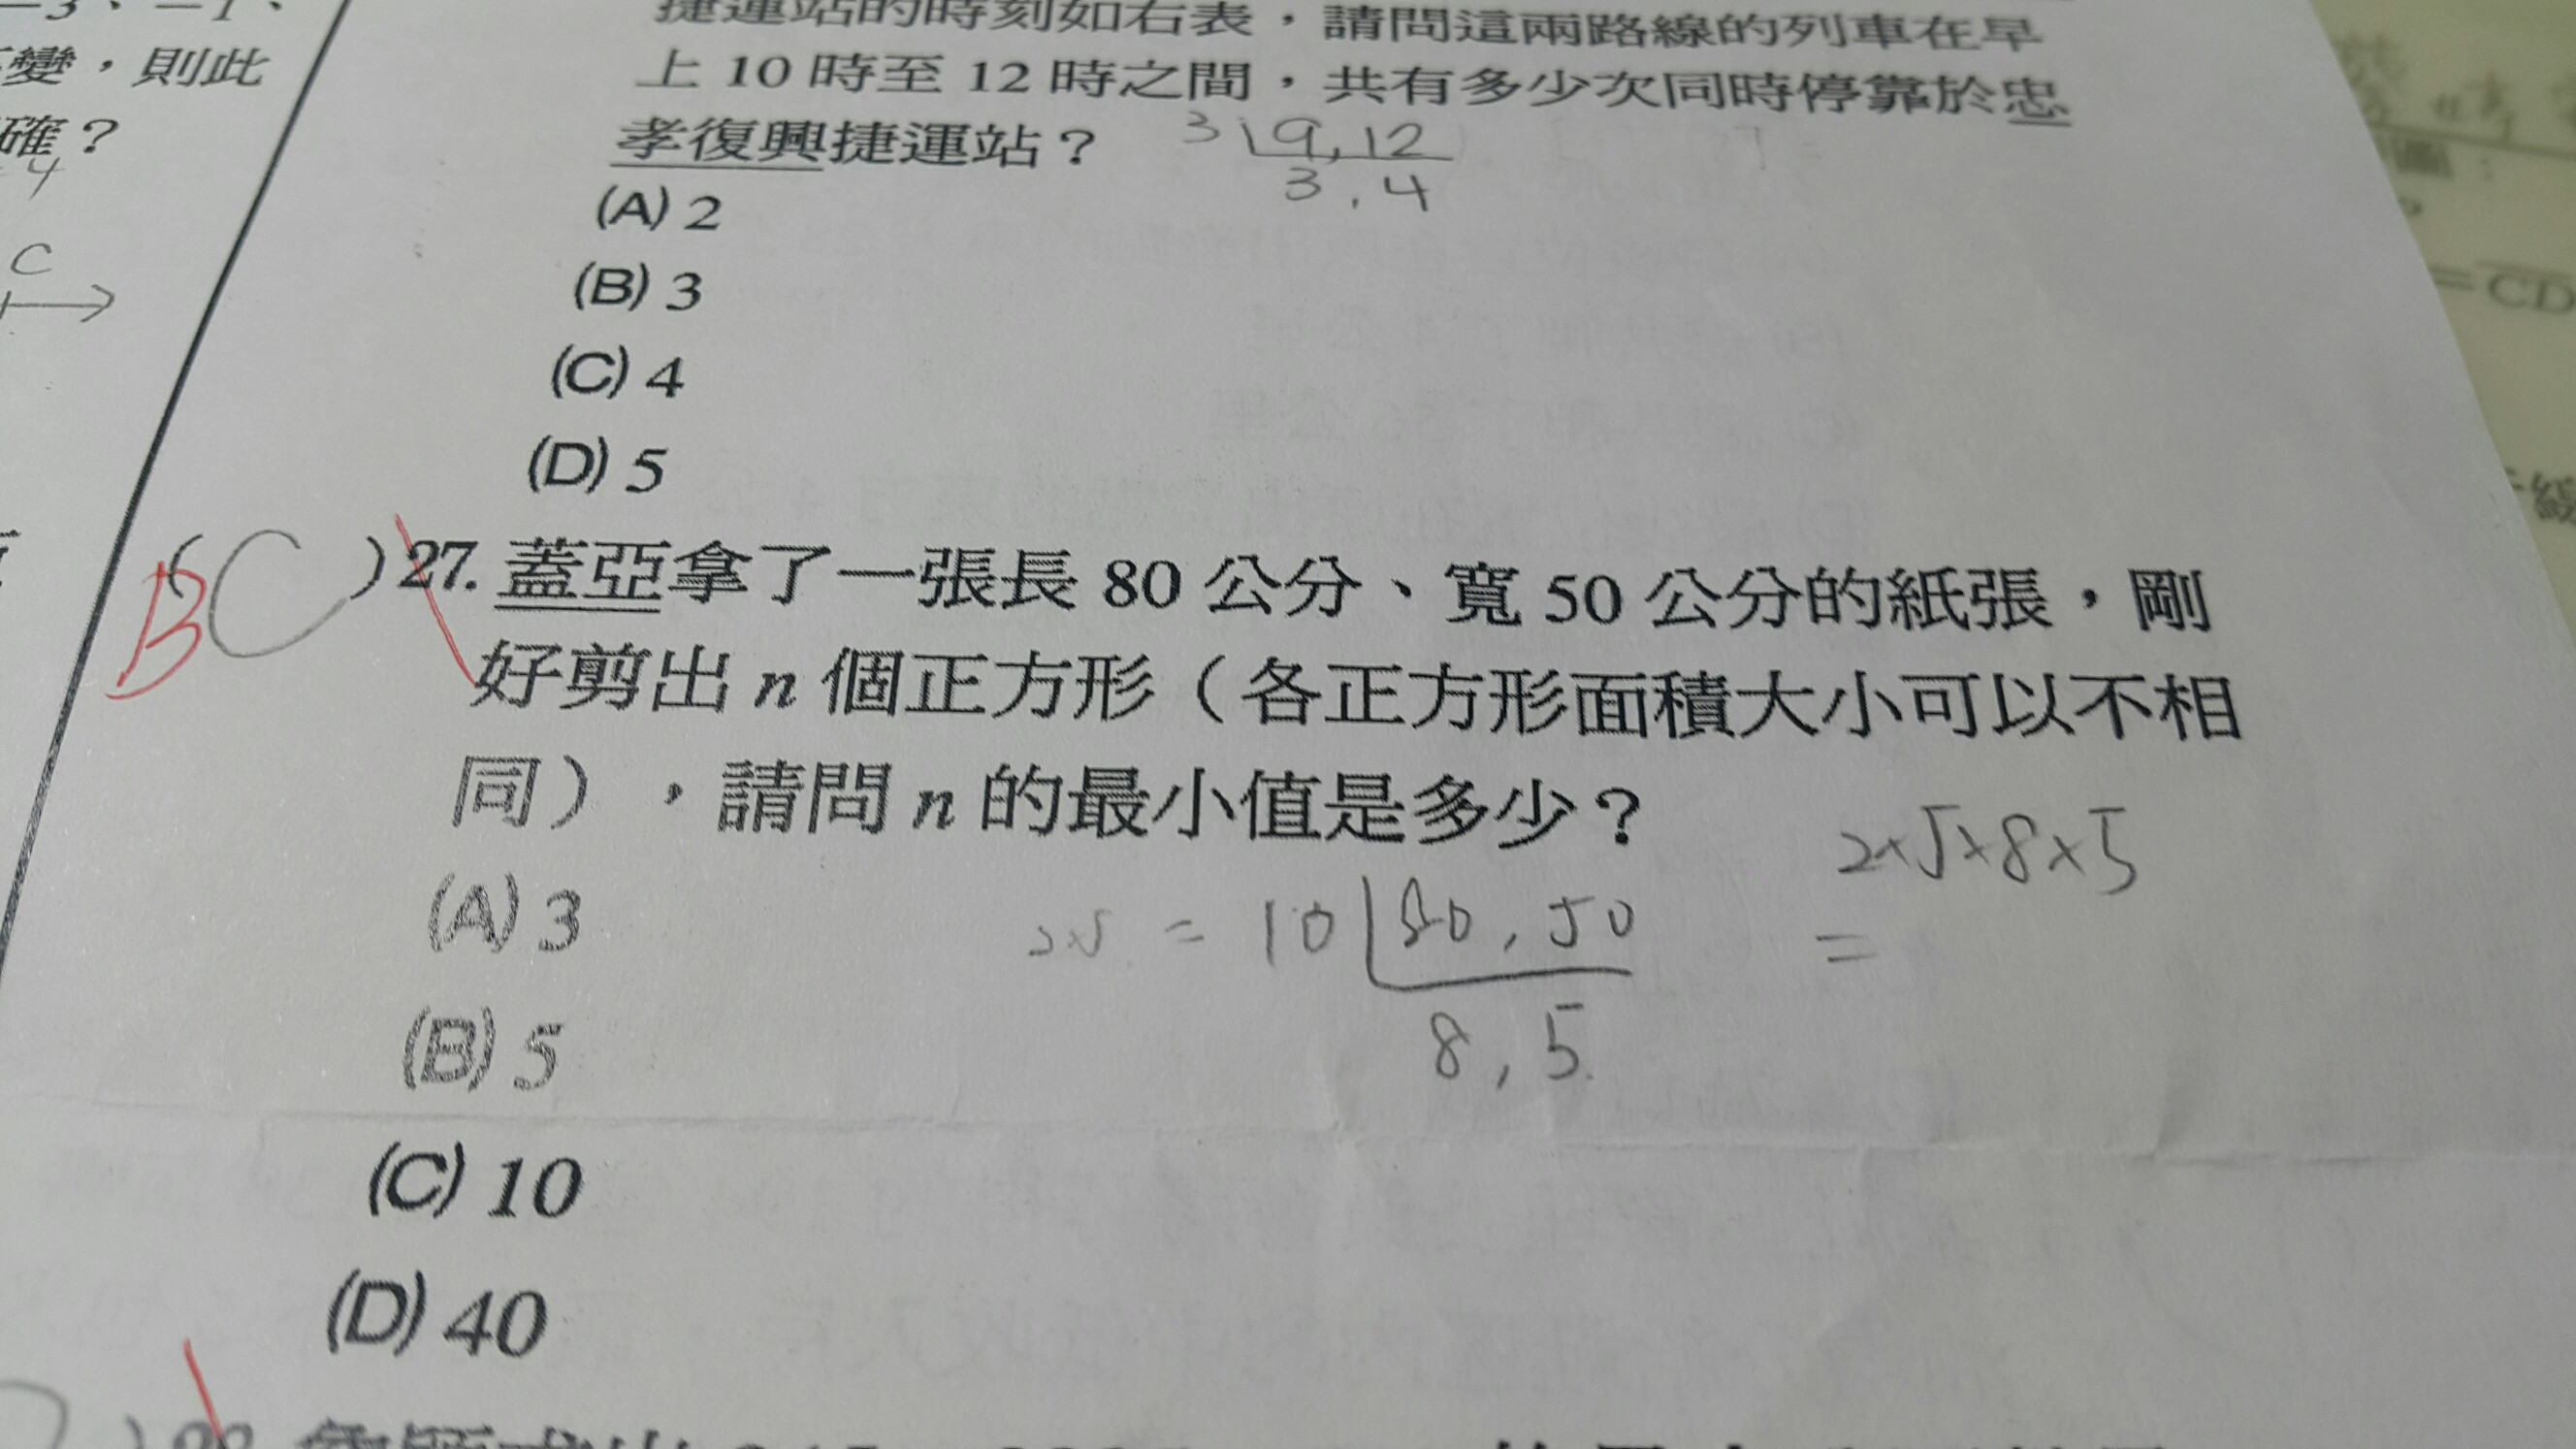 −3、−1、
變，則此
確？
4
C
捷運站的時刻如右表，請問這兩路線的列車在早
上 10 時至 12 時之間，共有多少次同時停靠於忠
孝復興捷運站？
3 9, 12
3 , 4
(A) 2
(B) 3
(C) 4
(D) 5
B ( C ) 27. 蓋亞拿了一張長 80 公分、寬 50 公分的紙張，剛
好剪出 n 個正方形（各正方形面積大小可以不相
同），請問 n 的最小值是多少？
2×5×8×5
=
(A) 3
2×5 = 10 80 , 50
8 , 5
(B) 5
(C) 10
(D) 40
=CD